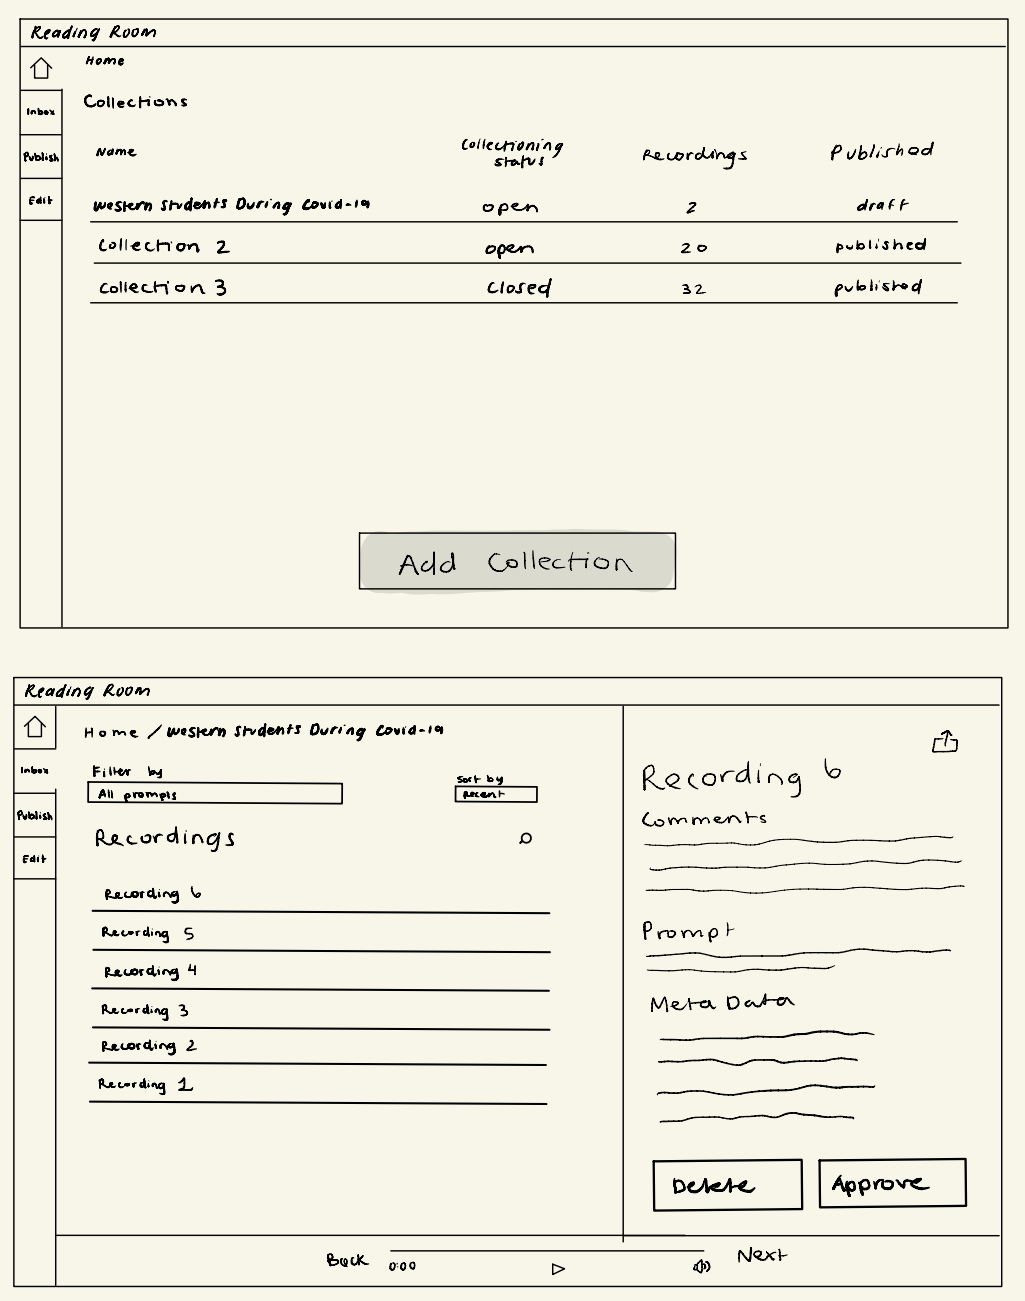 Reading Room
Home
Inbox
Publish
Edit
Collections
Name Collectioning status Recordings Published
Western Students During Covid-19 open 2 draft
Collection 2 open 20 published
Collection 3 Closed 32 published
Add Collection
Reading Room
Inbox
Publish
Edit
Home / Western Students During Covid-19
Filter by
All prompts
Sort by
Recent
Recordings
Recording 6
Recording 5
Recording 4
Recording 3
Recording 2
Recording 1
Recording 6
Comments
Prompt
Meta Data
Delete Approve
Back 0:00 Next